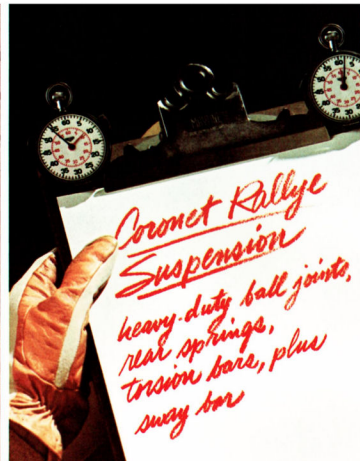 Coronet Rallye
Suspension
heavy-duty ball joints,
rear springs,
torsion bars, plus
sway bar